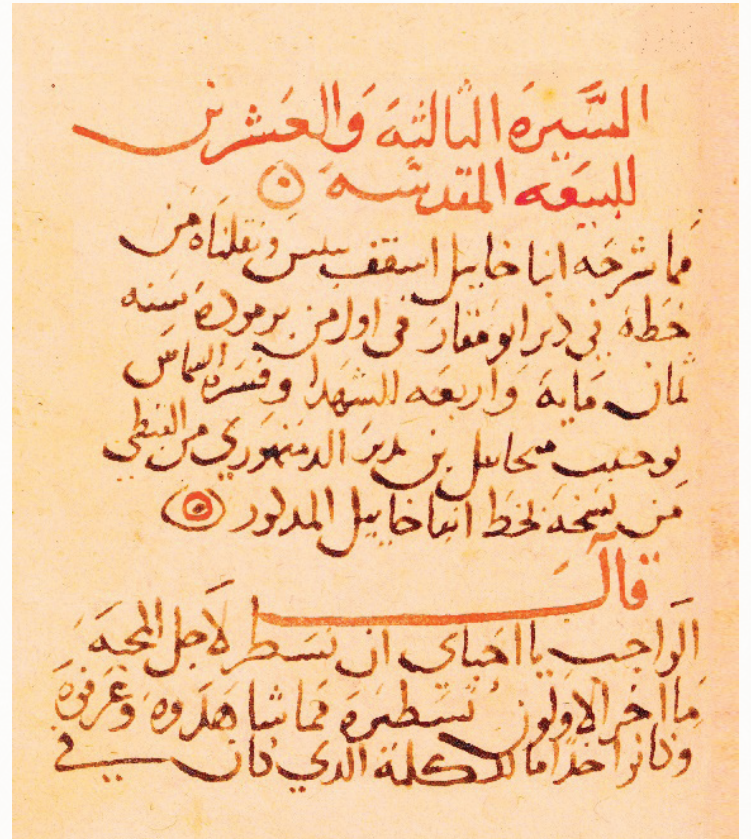 السَّيرَة الثالثه وَالعَشرين
للبيعَه المقدسَه
مما شرحَه انبا خاييل اسقف تنيس ونقلنَاه من
خطه في دير ابو مقار في اول من برموده سَنه
ثمان مَاية وَاربعه للشهدا وفسرَه الشماس
بوحبيب ميخاييل بن بدير الدمنهوري من القبطي
مَن نسَخه بخط انبا خاييل المذكور
قال
الوَاجب يا احبَاي ان نسَطر لاجل المحبه
مَا اخر الاوَلون تسَطيرَه مما شاهَدوه وَعَرفوهَ
وَكانوا خدامَا للكلمة الذي كان في